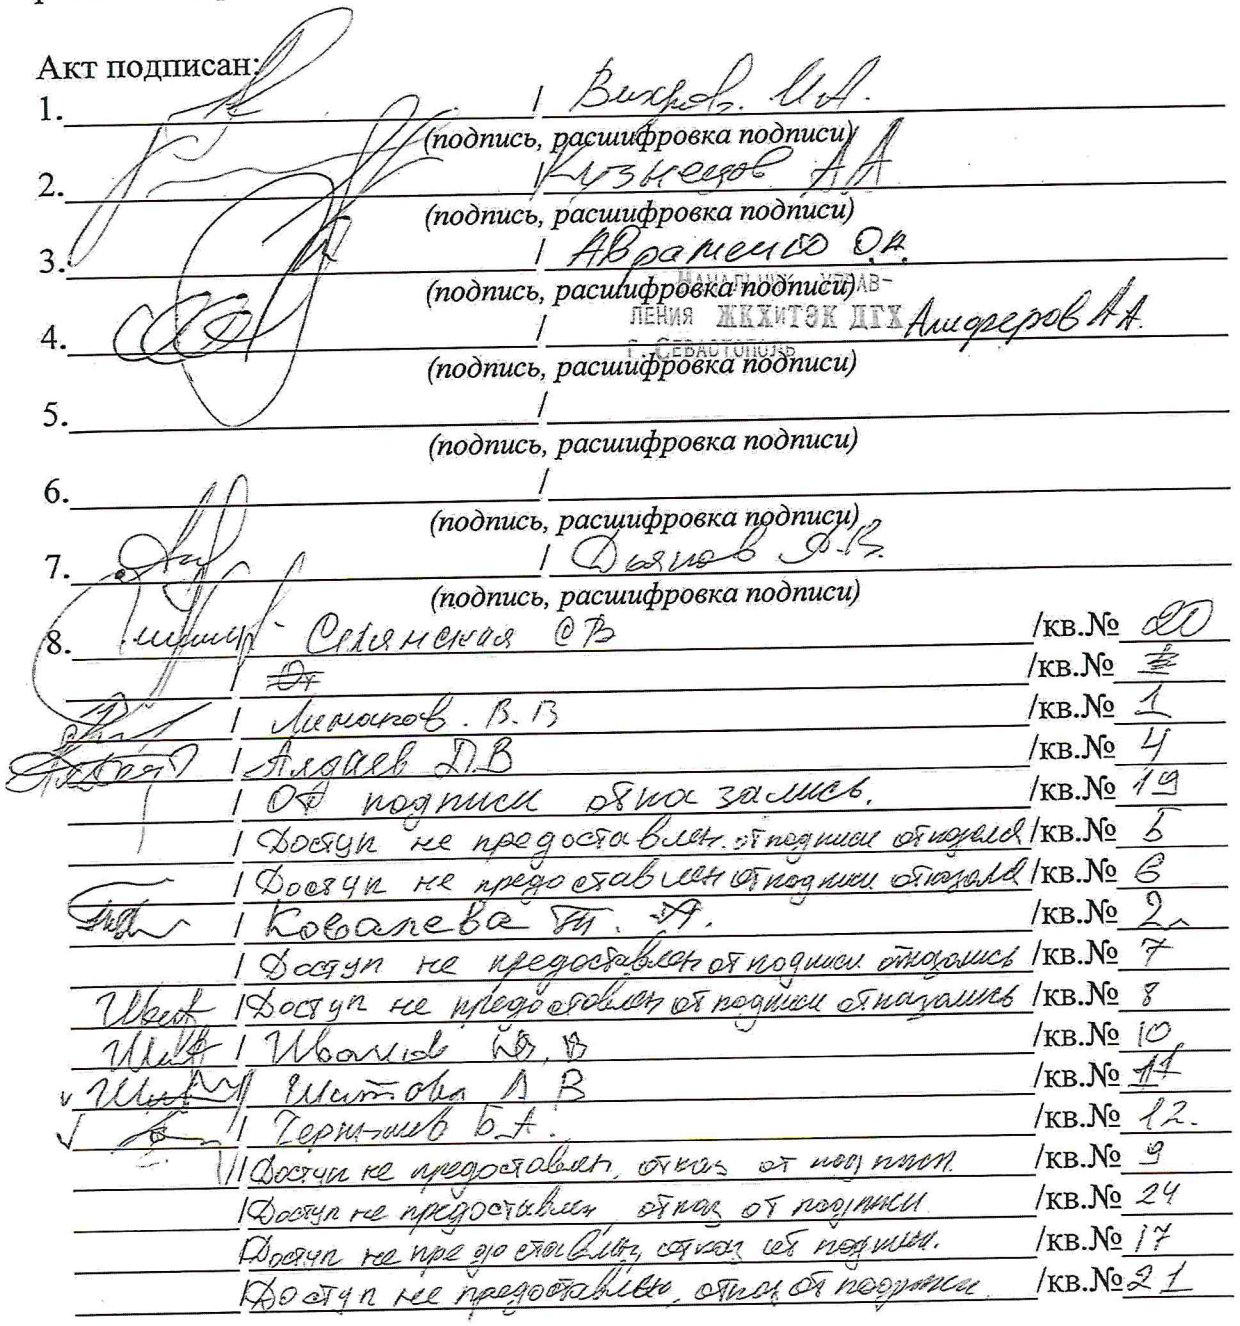 Акт подписан:
1. / Вихров. И.А.
(подпись, расшифровка подписи)
2. / Кузнецов А А
(подпись, расшифровка подписи)
3. / Авраменко О.Н.
(подпись, расшифровка подписи)
НАЧАЛЬНИК УПРАВ-
ЛЕНИЯ ЖКХиТЭК ДГХ
4. / Алиферов А А.
Г. СЕВАСТОПОЛЬ
(подпись, расшифровка подписи)
5. /
(подпись, расшифровка подписи)
6. /
(подпись, расшифровка подписи)
7. / Дьянов А.В.
(подпись, расшифровка подписи)
8. С В /кв.№ 20
/ От /кв.№
/ В.В /кв.№ 1
/ Алдаев Д.В /кв.№ 4
/ От подписи отказались. /кв.№ 19
/ Доступ не предоставлен. от подписи отказался /кв.№ 5
/ Доступ не предоставлен от подписи отказался /кв.№ 6
/ Ковалева Т. А. /кв.№ 2
/ Доступ не предоставлен от подписи отказались /кв.№ 7
/ Доступ не предоставлен от подписи отказались /кв.№ 8
/ Иванов В /кв.№ 10
/ Шитова А В /кв.№ 11
/ Б.А. /кв.№ 12.
/ Доступ не предоставлен, отказ от подписи /кв.№ 9
/ Доступ не предоставлен, отказ от подписи /кв.№ 24
/ Доступ не предоставлен, отказ от подписи. /кв.№ 17
/ Доступ не предоставлен, отказ от подписи. /кв.№ 21